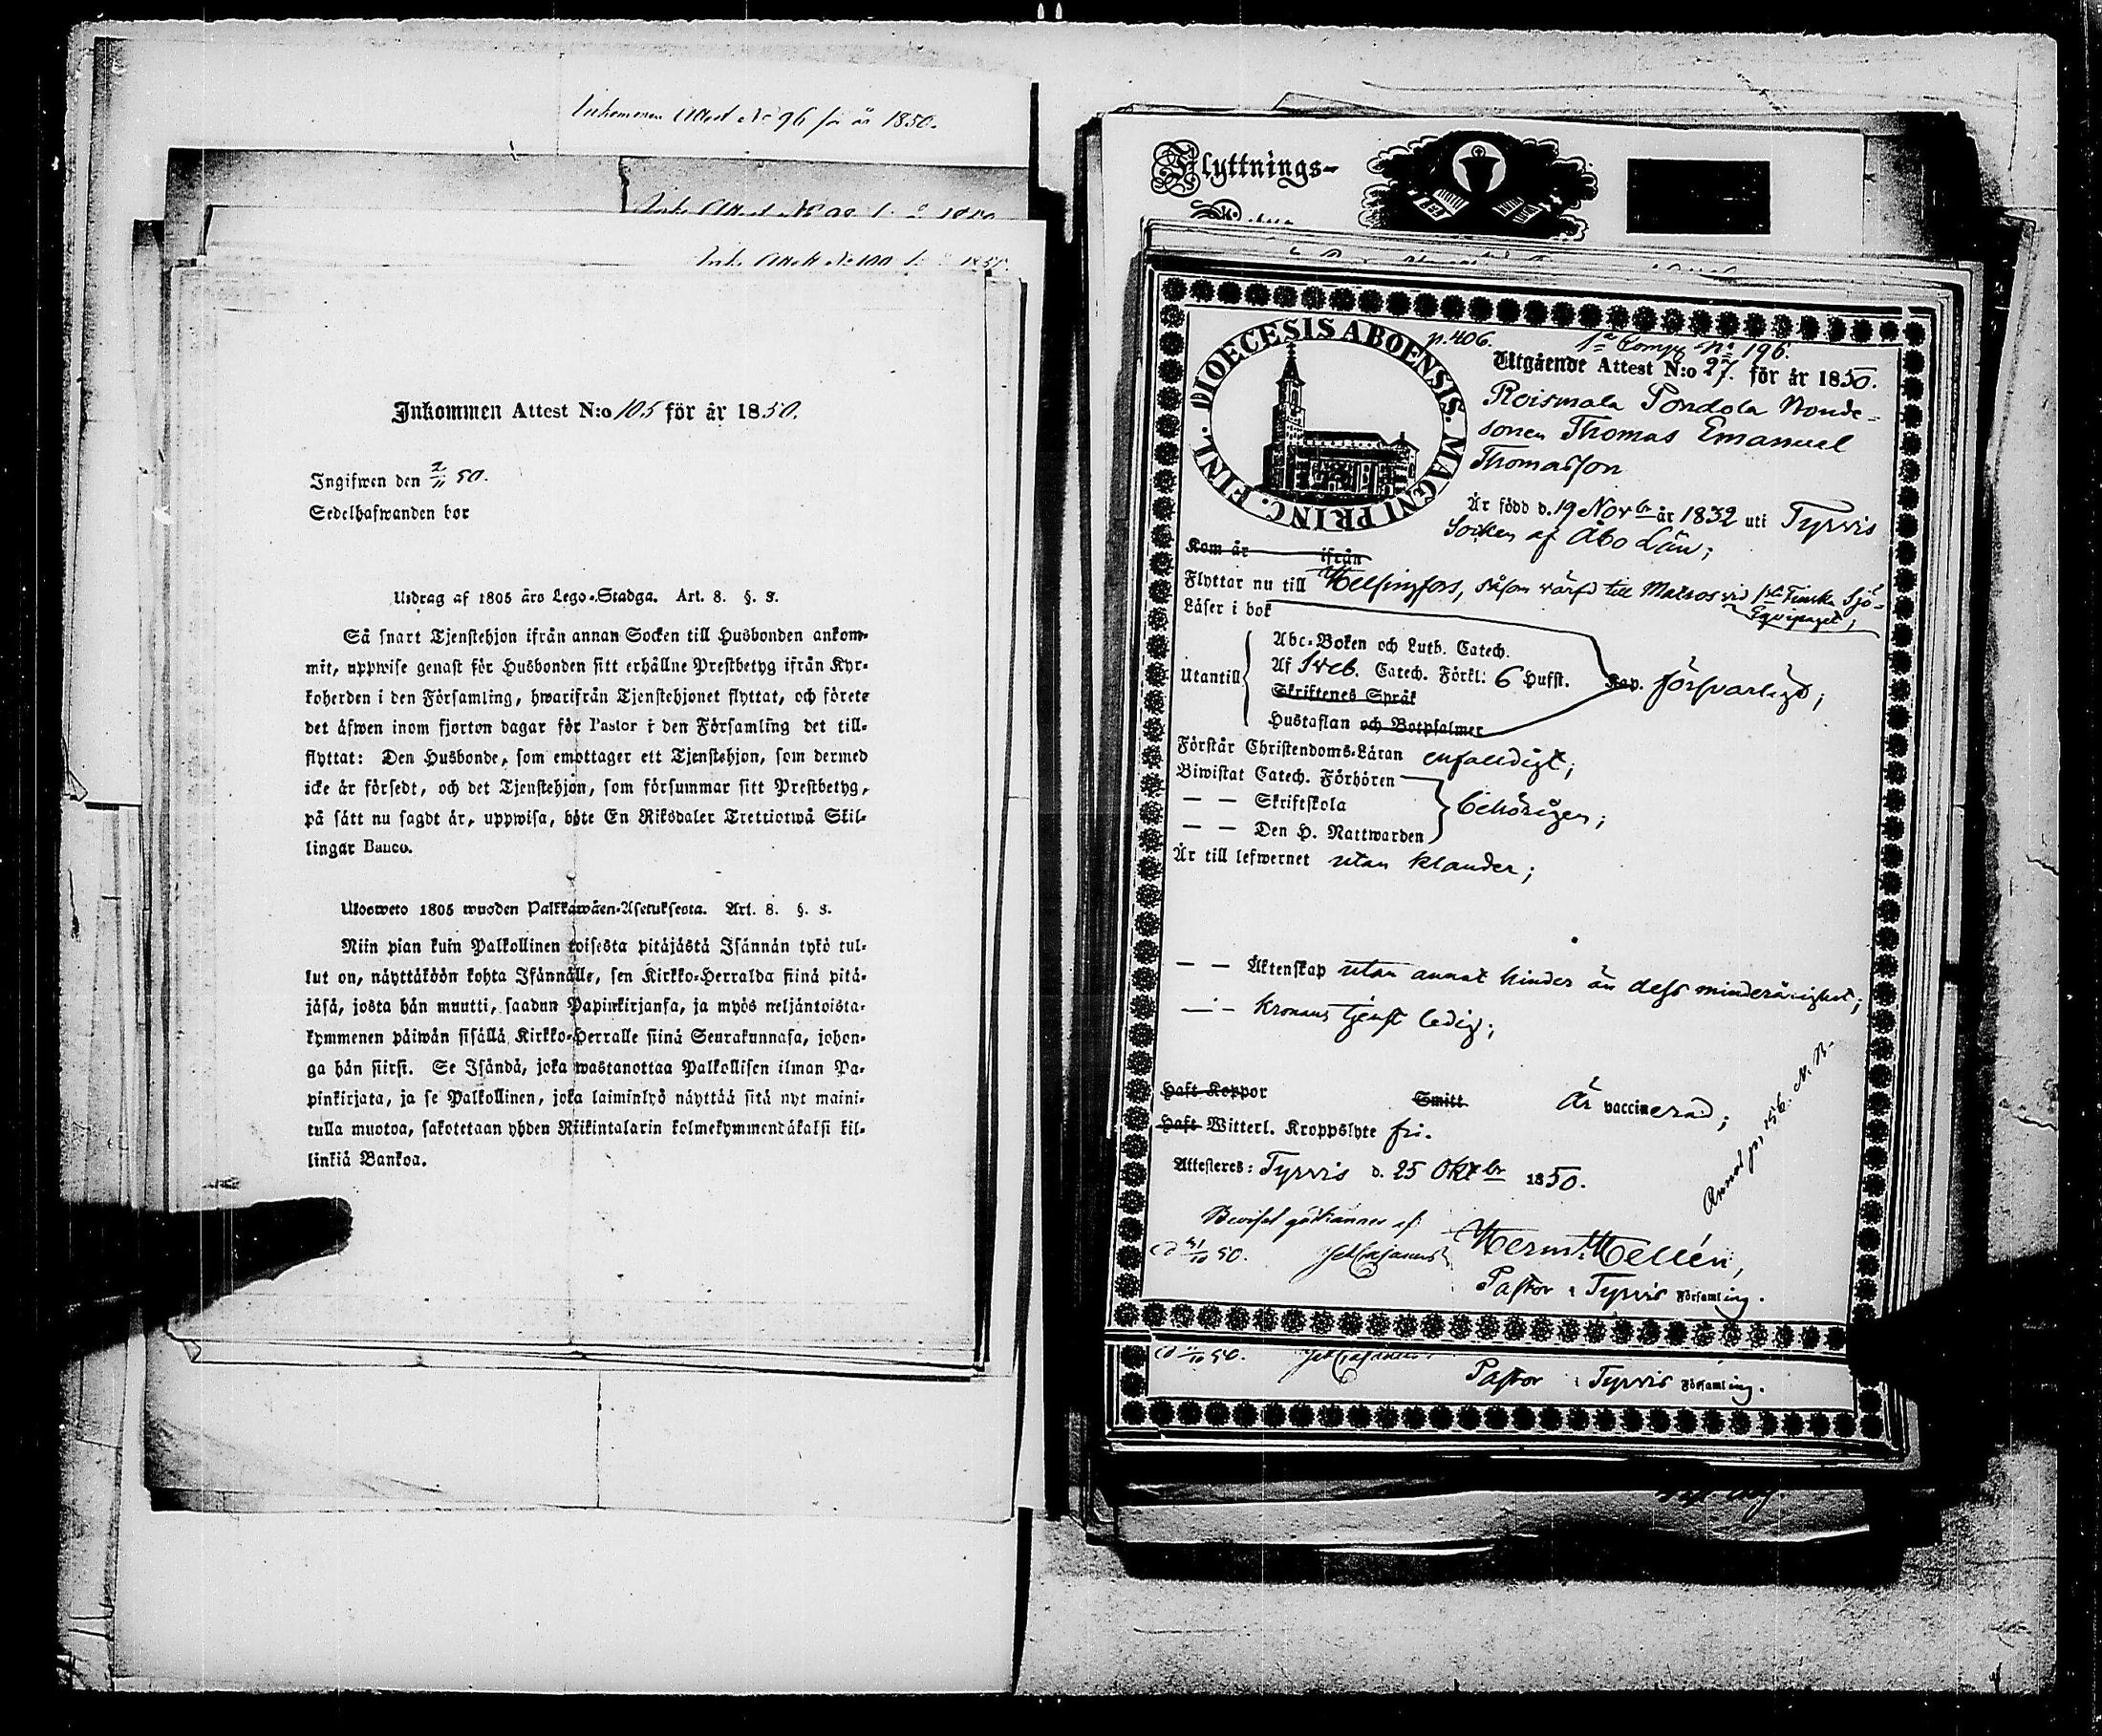 Inkommen Attest No 96 för år 1850.
Inkommen Attest N:o 105 för år 1850.
Ingifwen den 2/11 50.
Sedelhafwanden bör
Utdrag af 1805 års Lego-Stadga. Art. 8. §. 8.
Så snart Tjenstehjon ifrån annan Socken till Husbonden ankom-
mit, uppwise genast för Husbonden sitt erhållne Prestbetyg ifrån Kyr-
koherden i den Församling, hwarifrån Tjenstehjonet flyttat, och förete
det äfwen inom fjorton dagar för Pastor i den Församling det till-
flyttat: Den Husbonde, som emottager ett Tjenstehjon, som dermed
icke är försedt, och det Tjenstehjon, som försummar sitt Prestbetyg,
på sätt nu sagdt är, uppwisa, böte En Riksdaler Trettiotwå Skil-
lingar Banco.
Ulosweto 1805 wuoden Palkkawäen-Asetuksesta. Art. 8. §. 8.
Niin pian kuin Palkollinen toisesta pitäjästä Isännän tykö tul-
lut on, näyttäköön kohta Isännälle, sen Kirkko-Herralda siinä pitä-
jäsä, josta hän muutti, saadun Papinkirjansa, ja myös neljäntoista-
kymmenen päiwän sisällä Kirkko-Herralle siinä Seurakunnasa, johon-
ga hän siirsi. Se Isändä, joka wastanottaa Palkollisen ilman Pa-
pinkirjata, ja se Palkollinen, joka laiminlyö näyttää sitä nyt maini-
tulla muotoa, sakotetaan yhden Riikintalarin kolmekymmendäkaksi kil-
linkiä Bankoa.
Flyttnings-
DIOECESIS ABOENSIS. MAGNI PRINC. FINL.
p. 406.
1a Comp No 196.
Utgående Attest N:o 27. för år 1850.
Roismala Pondola Bonde-
sonen Thomas Emanuel
Thomasson
Är född d. 19 Novbr år 1832 uti Tyrvis
Socken af Åbo Län;
Kom år ifrån
Flyttar nu till Helsingfors, såsom värfd till Matros vid 1sta Finska Sjö-
Equipaget;
Läser i bok
Utantill
Abc-Boken och Luth. Catech.
Af Sveb. Catech. Förkl: 6 Hufst.
Skriftenes Språk
Hustaflan och Botpsalmer
Kap. försvarligt;
Förstår Christendoms-Läran enfaldigt;
Biwistat Catech. Förhören
— — Skriftskola
— — Den H. Nattwarden
behörigen;
Är till lefwernet utan klander;
— — Äktenskap utan annat hinder än dess minderårighet;
— - Kronans tjenst ledig;
Haft Koppor Smitt Är vaccinerad;
Haft Witterl. Kroppslyte fri.
Attesteras: Tyrvis d. 25 Oktbr 1850.
Beviset godkännes af
Herm. Hellén,
Pastor i Tyrvis Församling.
Pastor i Tyrvis Församling.